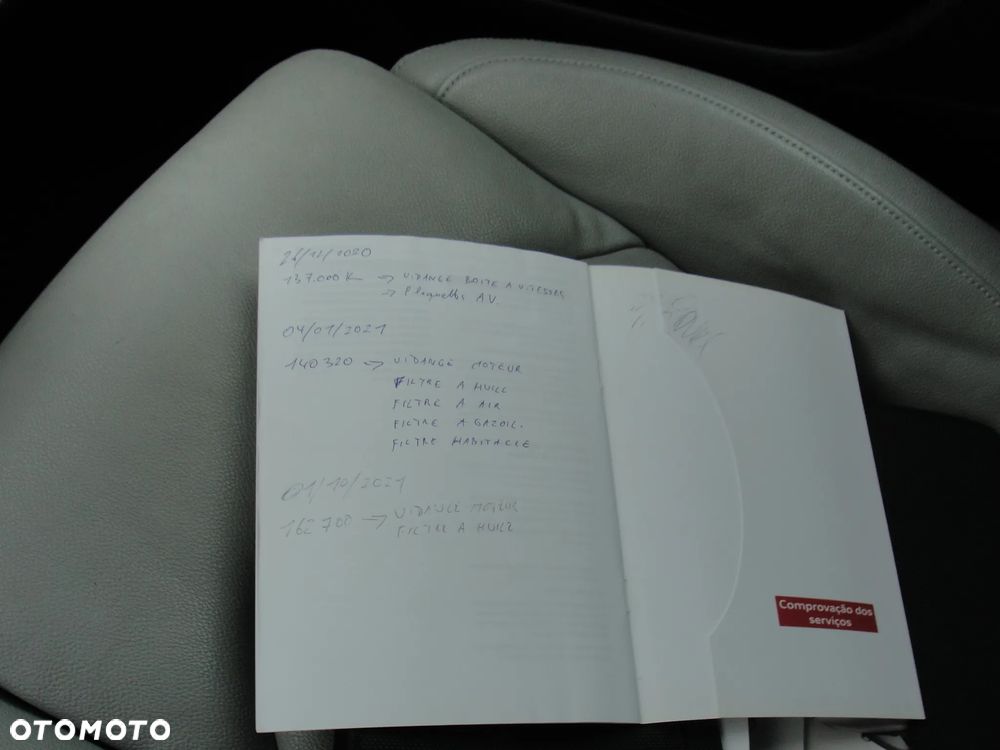 26/12/2020
137.000 K → VIDANGE BOITE A VITESSES
→ Plaquettes AV.
04/01/2021
140320 → VIDANGE MOTEUR
FILTRE A HUILE
FILTRE A AIR
FILTRE A GAZOIL.
FILTRE HABITACLE
01/10/2021
162700 → VIDANGE MOTEUR
FILTRE A HUILE
Comprovação dos
serviços
OTOMOTO